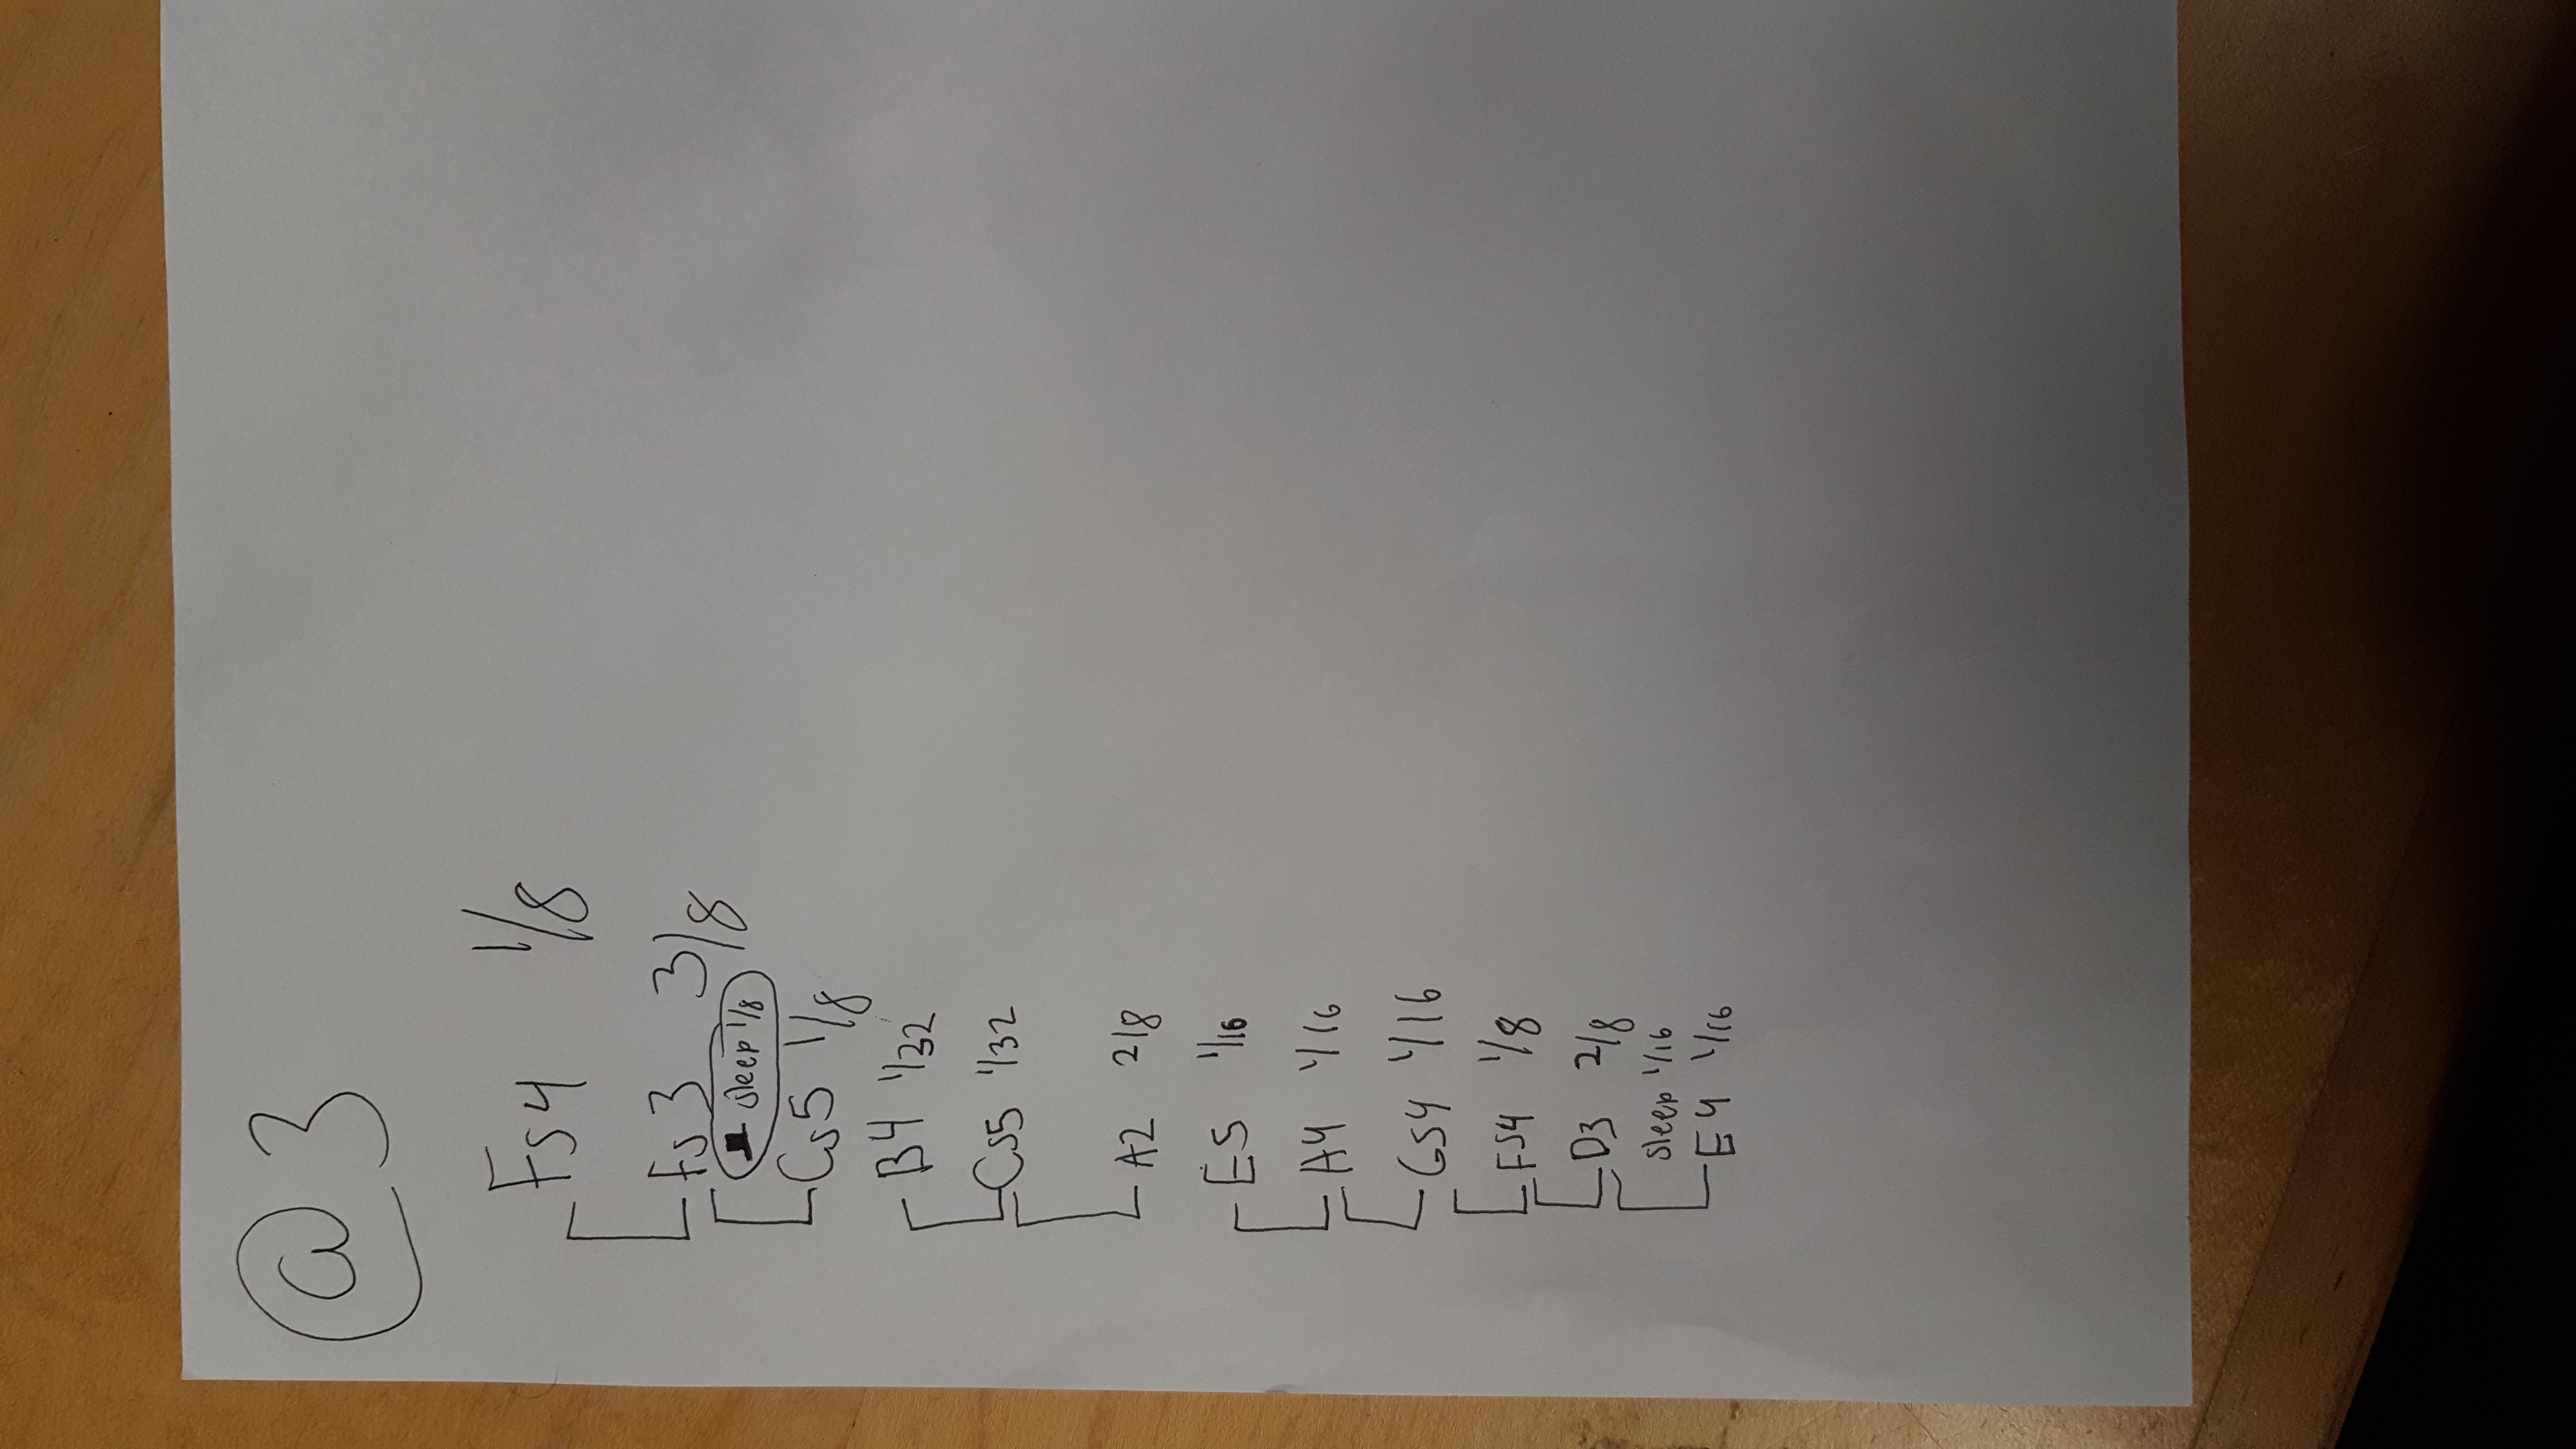 @3
Fs4 1/8
Fs3 3/8
sleep 1/8
Cs5 1/8
B4 1/32
Cs5 1/32
A2 2/8
E5 1/16
A4 1/16
Gs4 1/16
Fs4 1/8
D3 2/8
sleep 1/16
E4 1/16